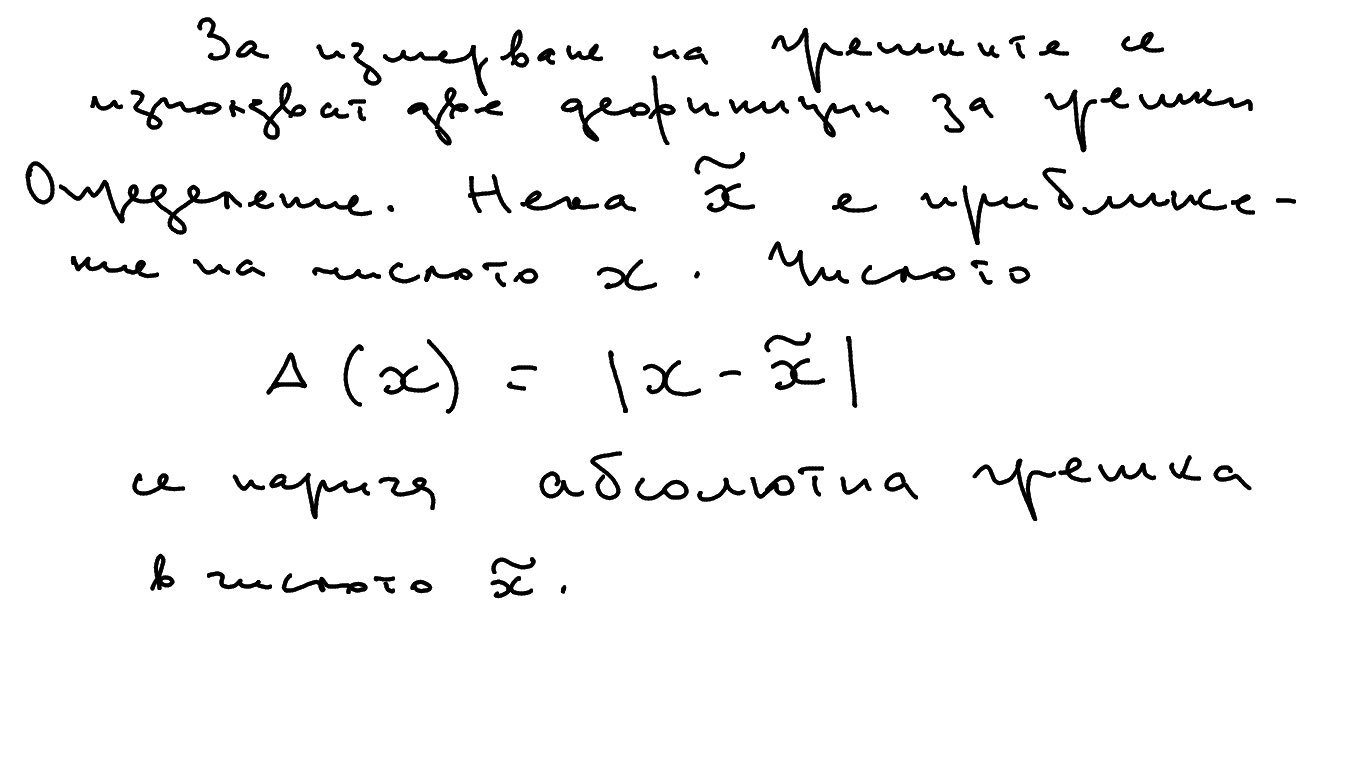 За измерване на грешките се
използват две дефиниции за грешки
Определение. Нека x̃ е приближе-
ние на числото x. Числото
Δ(x) = |x - x̃|
се нарича абсолютна грешка
в числото x̃.